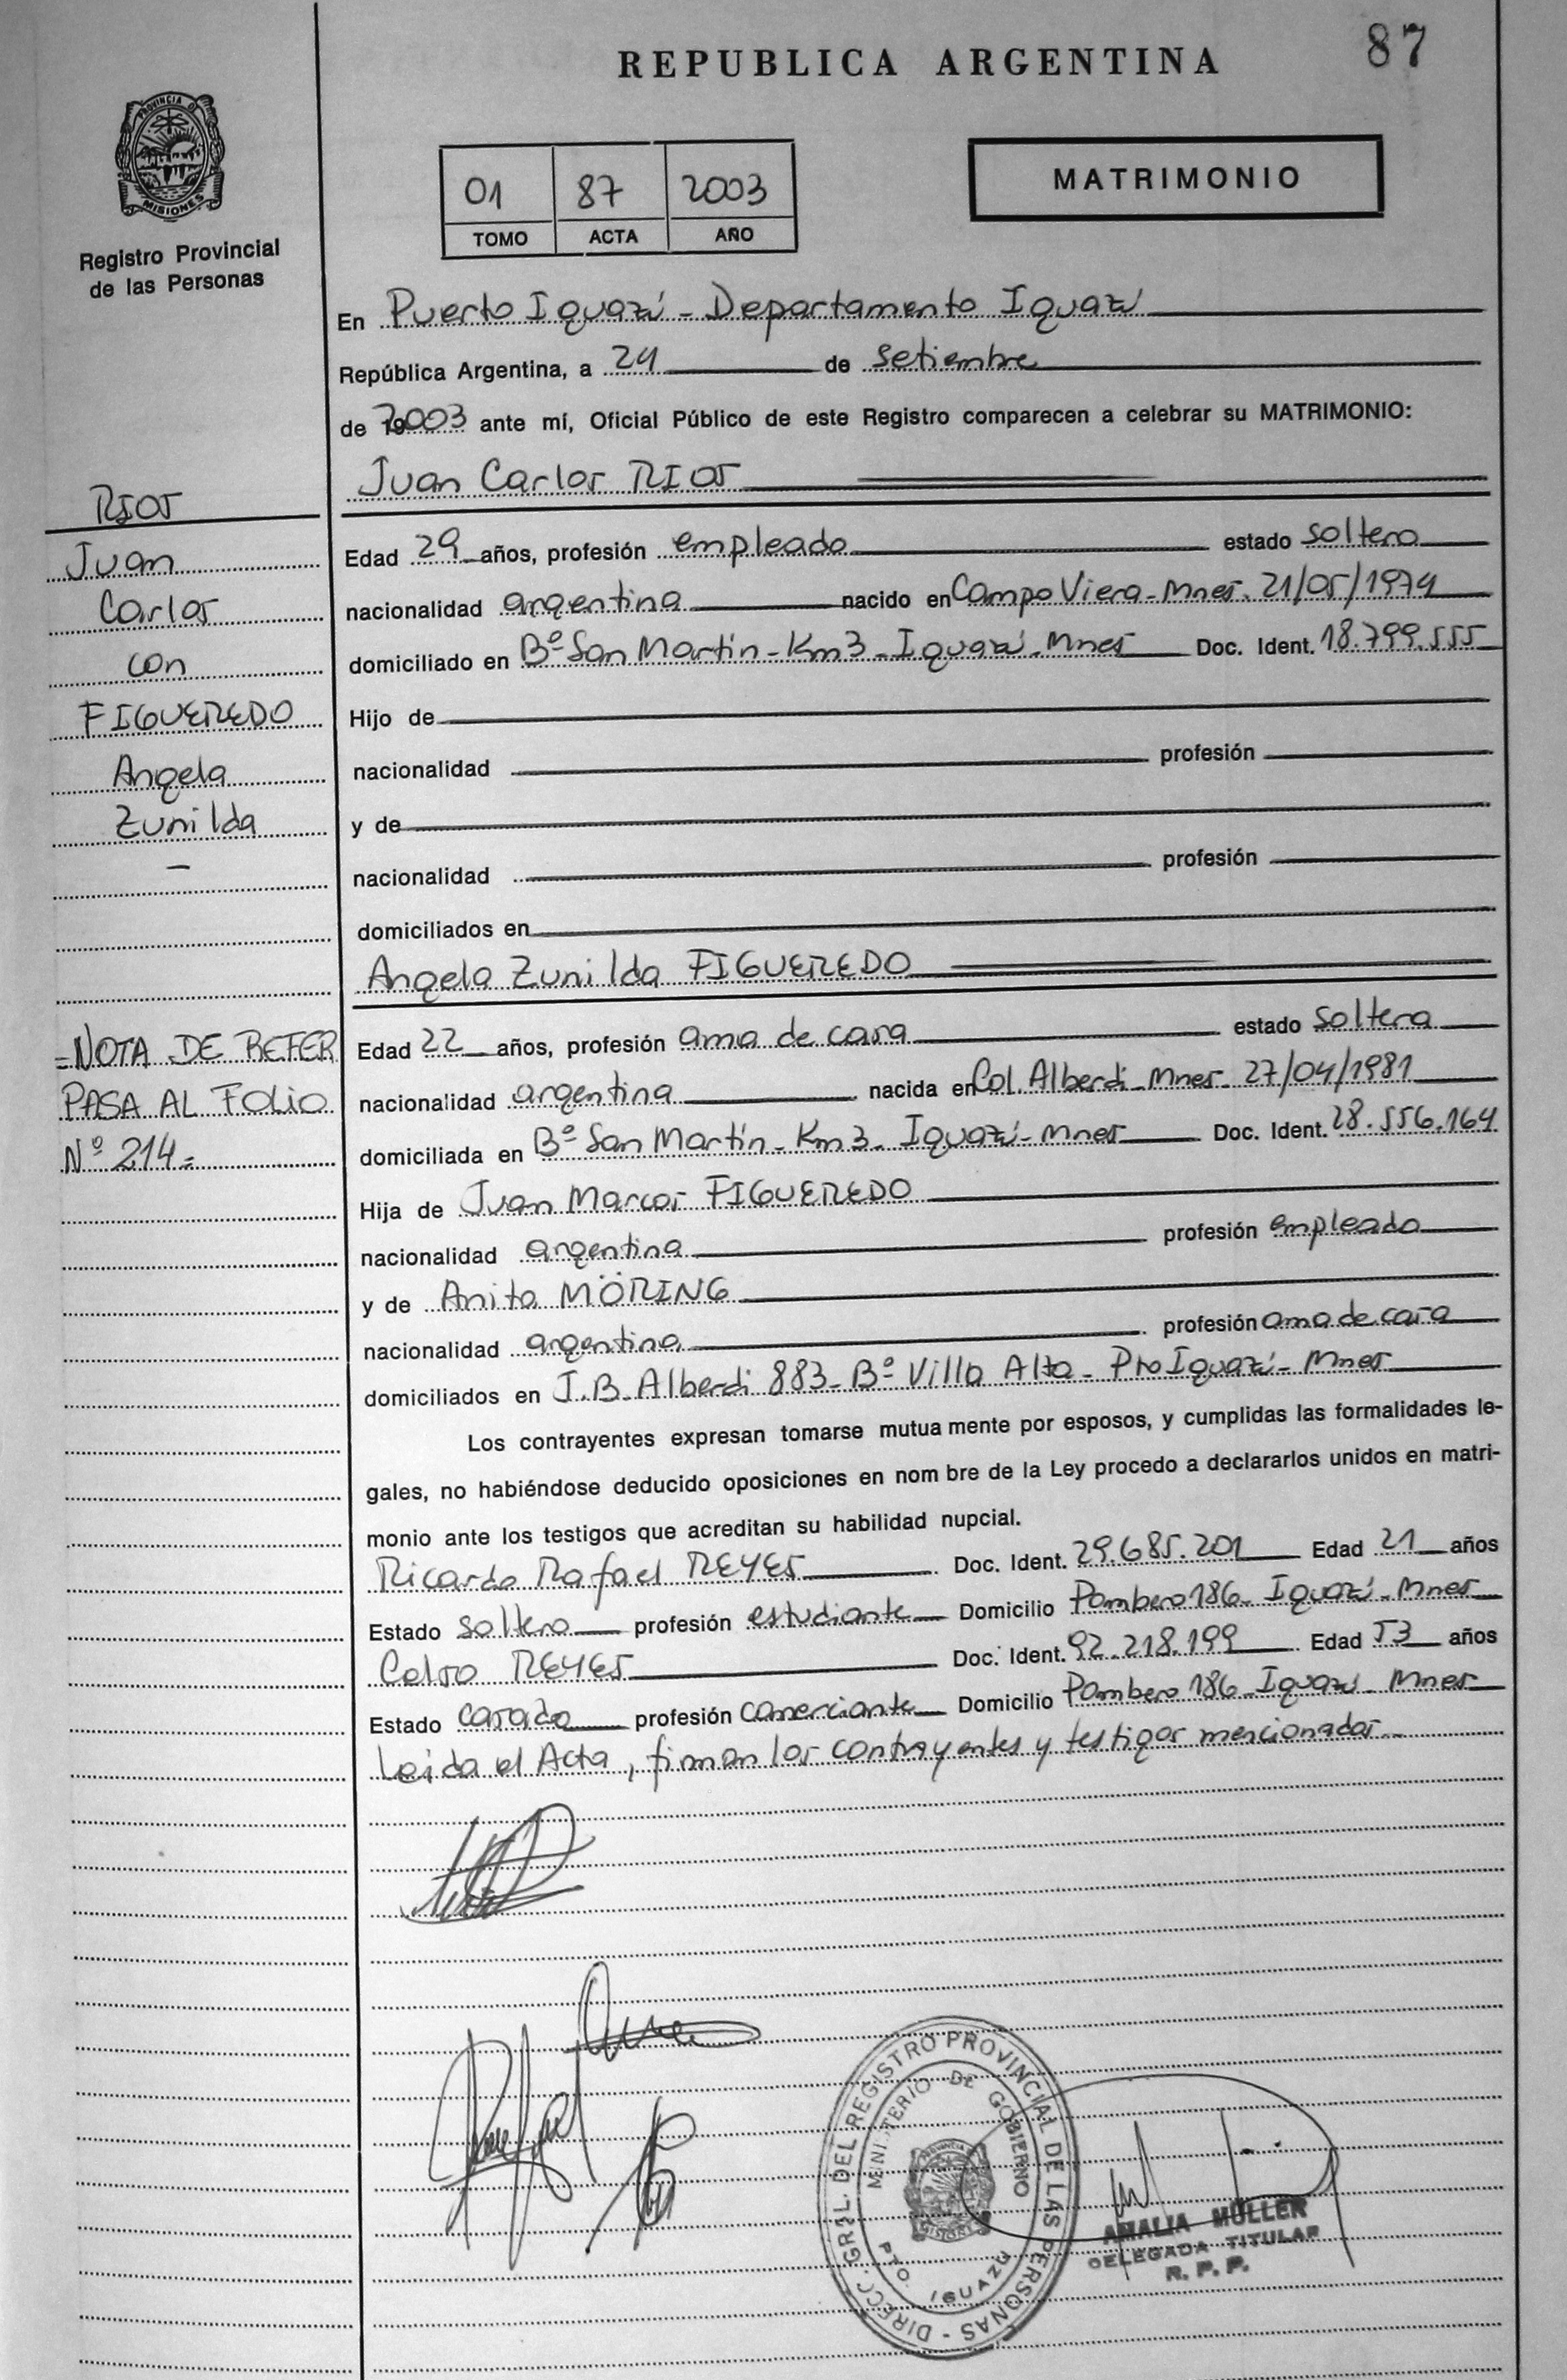 REPUBLICA ARGENTINA
87
PROVINCIA D
MISIONES
Registro Provincial
de las Personas
01 87 2003
TOMO ACTA AÑO
MATRIMONIO
En Puerto Iguazú - Departamento Iguazú
República Argentina, a 24 de setiembre
de 2003 ante mí, Oficial Público de este Registro comparecen a celebrar su MATRIMONIO:
Juan Carlos RIOS
RIOS
Juan
Carlos
con
FIGUEREDO
Angela
Zunilda
-
Edad 29 años, profesión empleado estado soltero
nacionalidad argentina nacido en Campo Viera - Mnes. 21/05/1974
domiciliado en Bº San Martín - Km3 - Iguazú - Mnes Doc. Ident. 18.799.555
Hijo de
nacionalidad profesión
y de
nacionalidad profesión
domiciliados en
Angela Zunilda FIGUEREDO
=NOTA DE REFER
PASA AL FOLIO
Nº 214=
Edad 22 años, profesión ama de casa estado soltera
nacionalidad argentina nacida en Col. Alberdi - Mnes - 27/04/1981
domiciliada en Bº San Martín - Km3 - Iguazú - Mnes Doc. Ident. 28.556.164
Hija de Juan Marcos FIGUEREDO
nacionalidad argentina profesión empleado
y de Anita MÖRING
nacionalidad argentina profesión ama de casa
domiciliados en J.B. Alberdi 883 - Bº Villa Alta - Pto Iguazú - Mnes
Los contrayentes expresan tomarse mutua mente por esposos, y cumplidas las formalidades le-
gales, no habiéndose deducido oposiciones en nom bre de la Ley procedo a declararlos unidos en matri-
monio ante los testigos que acreditan su habilidad nupcial.
Ricardo Rafael REYES Doc. Ident. 29.685.201 Edad 21 años
Estado soltero profesión estudiante Domicilio Pombero 186 - Iguazú - Mnes
Celso REYES Doc. Ident. 92.218.199 Edad 53 años
Estado casado profesión comerciante Domicilio Pombero 186 - Iguazú - Mnes
Leida el Acta, firman los contrayentes y testigos mencionados.-
DIRECC. GRAL. DEL REGISTRO PROVINCIAL DE LAS PERSONAS -
MINISTERIO DE GOBIERNO
PTO. IGUAZU
AMALIA MÜLLER
DELEGADA TITULAR
R. P. P.